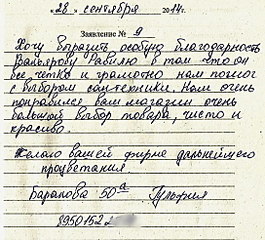 « 28 » сентября 2014г.
Заявление № 9
Хочу выразить особую благодарность
Равилю в том что он
все, чётко и грамотно нам помог
с выбором сантехники. Нам очень
понравился ваш магазин очень
большой выбор товара, чисто и
красиво.
Желаю вашей фирме дальнейшего
процветания.
50а Гульфия
8950152